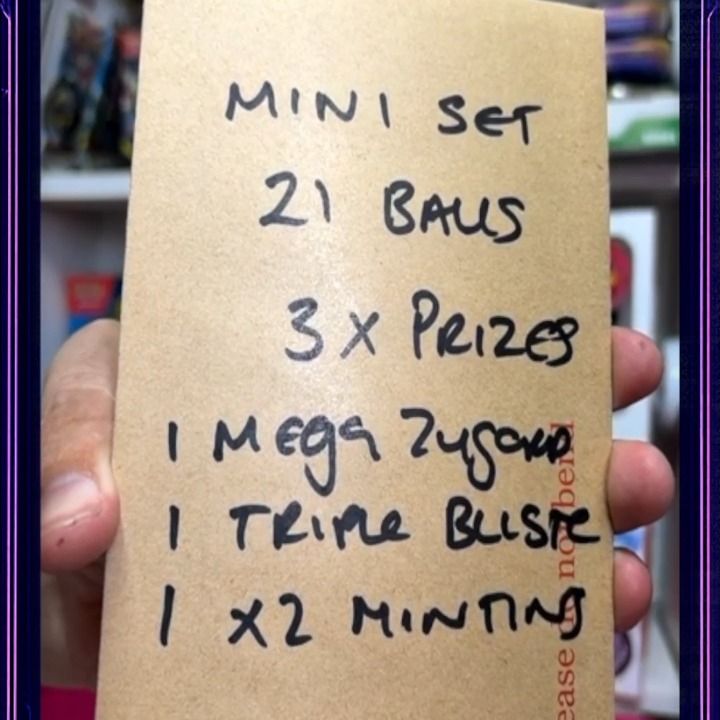 MINI SET
21 BALLS
3 X PRIZES
1 MEga Zygard
1 TRIPLE BLISTE
1 X2 MINTINS
ease do not bend